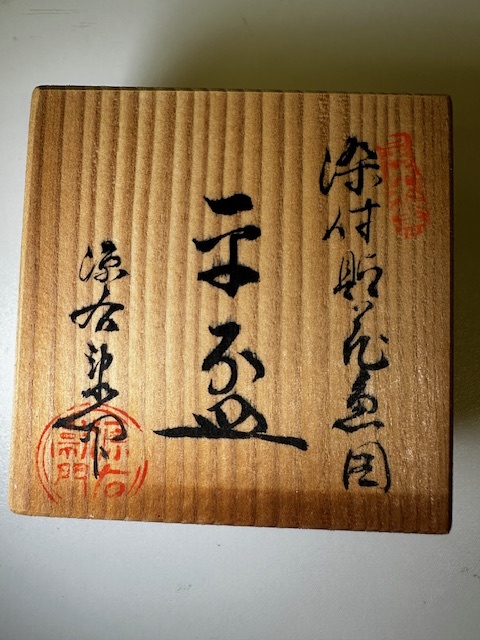 染付花魚図
平盃
源右衛門
源右衛門